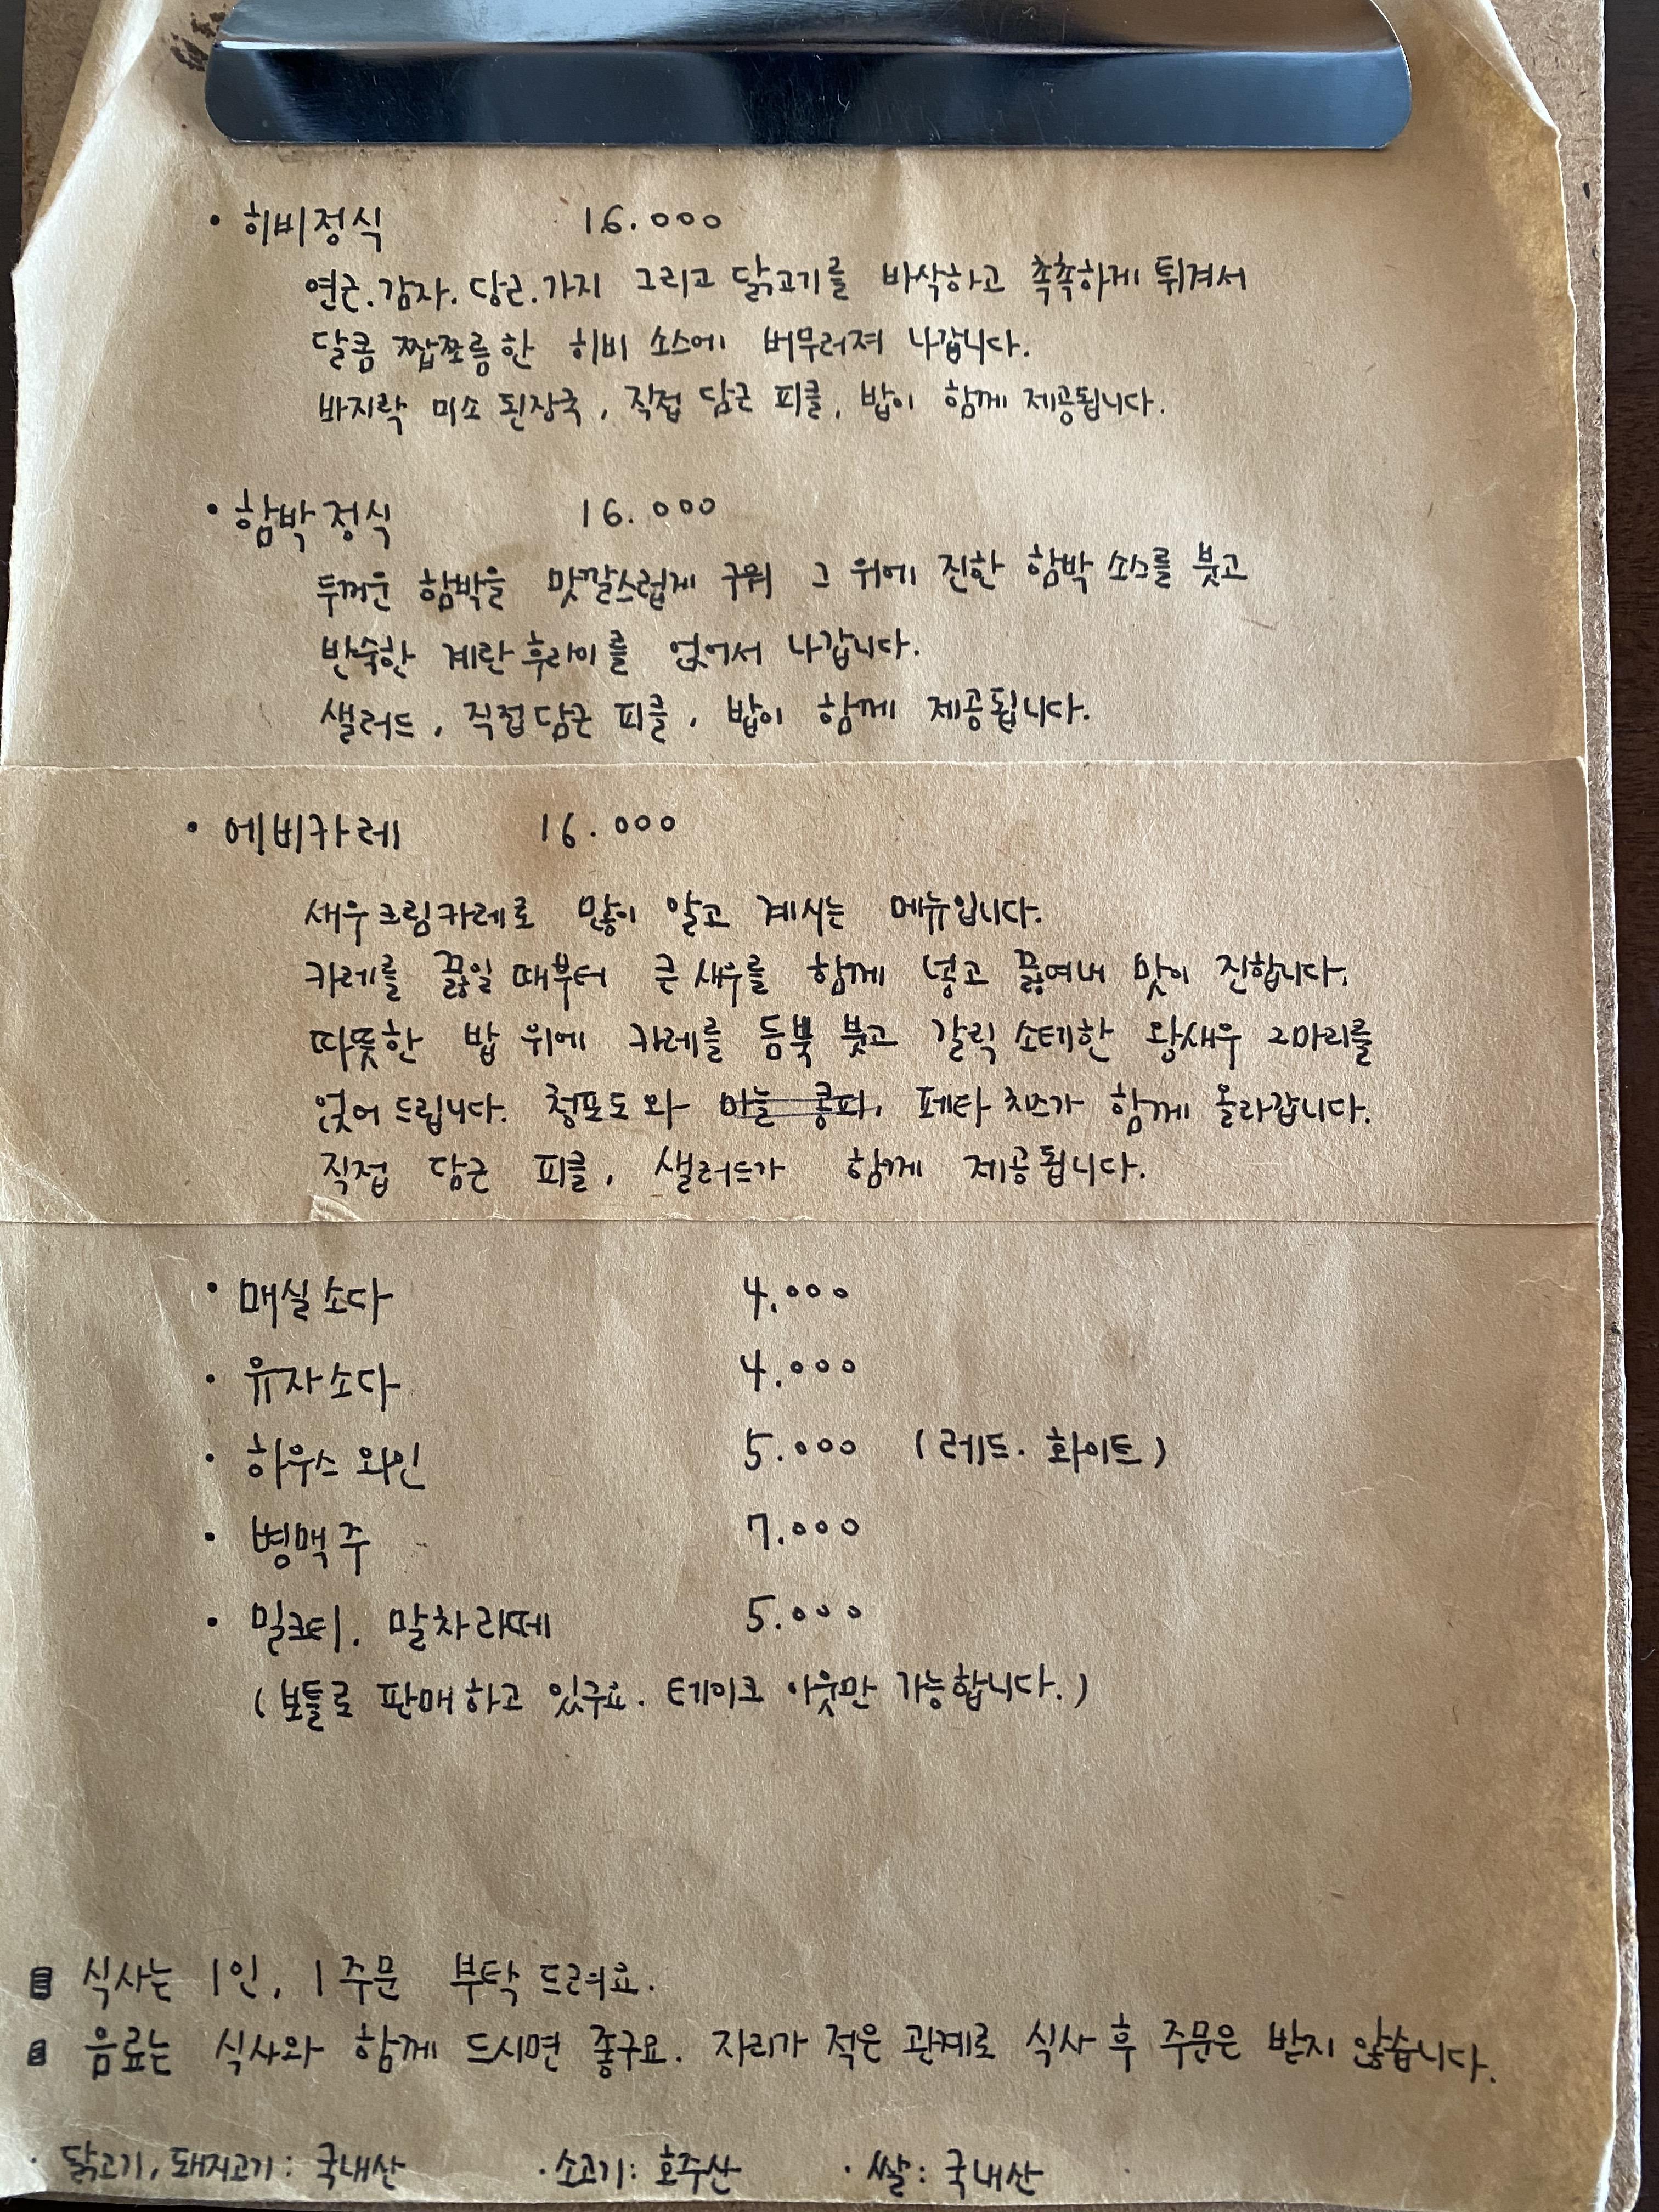 • 히비정식 16.000
연근.감자.당근.가지 그리고 닭고기를 바삭하고 촉촉하게 튀겨서
달콤 짭쪼름한 히비 소스에 버무려져 나갑니다.
바지락 미소 된장국, 직접 담근 피클, 밥이 함께 제공됩니다.
• 함박정식 16.000
두꺼운 함박을 맛깔스럽게 구워 그 위에 진한 함박 소스를 붓고
반숙한 계란후라이를 얹어서 나갑니다.
샐러드, 직접담근 피클, 밥이 함께 제공됩니다.
• 에비카레 16.000
새우크림카레로 많이 알고 계시는 메뉴입니다.
카레를 끓일 때부터 큰 새우를 함께 넣고 끓여내 맛이 진합니다.
따뜻한 밥 위에 카레를 듬뿍 붓고 갈릭 소테한 왕새우 2마리를
얹어 드립니다. 청포도와 마늘 콩피, 페타 치즈가 함께 올라갑니다.
직접 담근 피클, 샐러드가 함께 제공됩니다.
• 매실소다 4.000
• 유자소다 4.000
• 하우스 와인 5.000 (레드. 화이트)
• 병맥주 7.000
• 밀크티. 말차라떼 5.000
(보틀로 판매하고 있구요. 테이크 아웃만 가능합니다.)
식사는 1인, 1주문 부탁 드려요.
음료는 식사와 함께 드시면 좋구요. 자리가 적은 관계로 식사 후 주문은 받지 않습니다.
· 닭고기, 돼지고기: 국내산 · 소고기: 호주산 · 쌀: 국내산